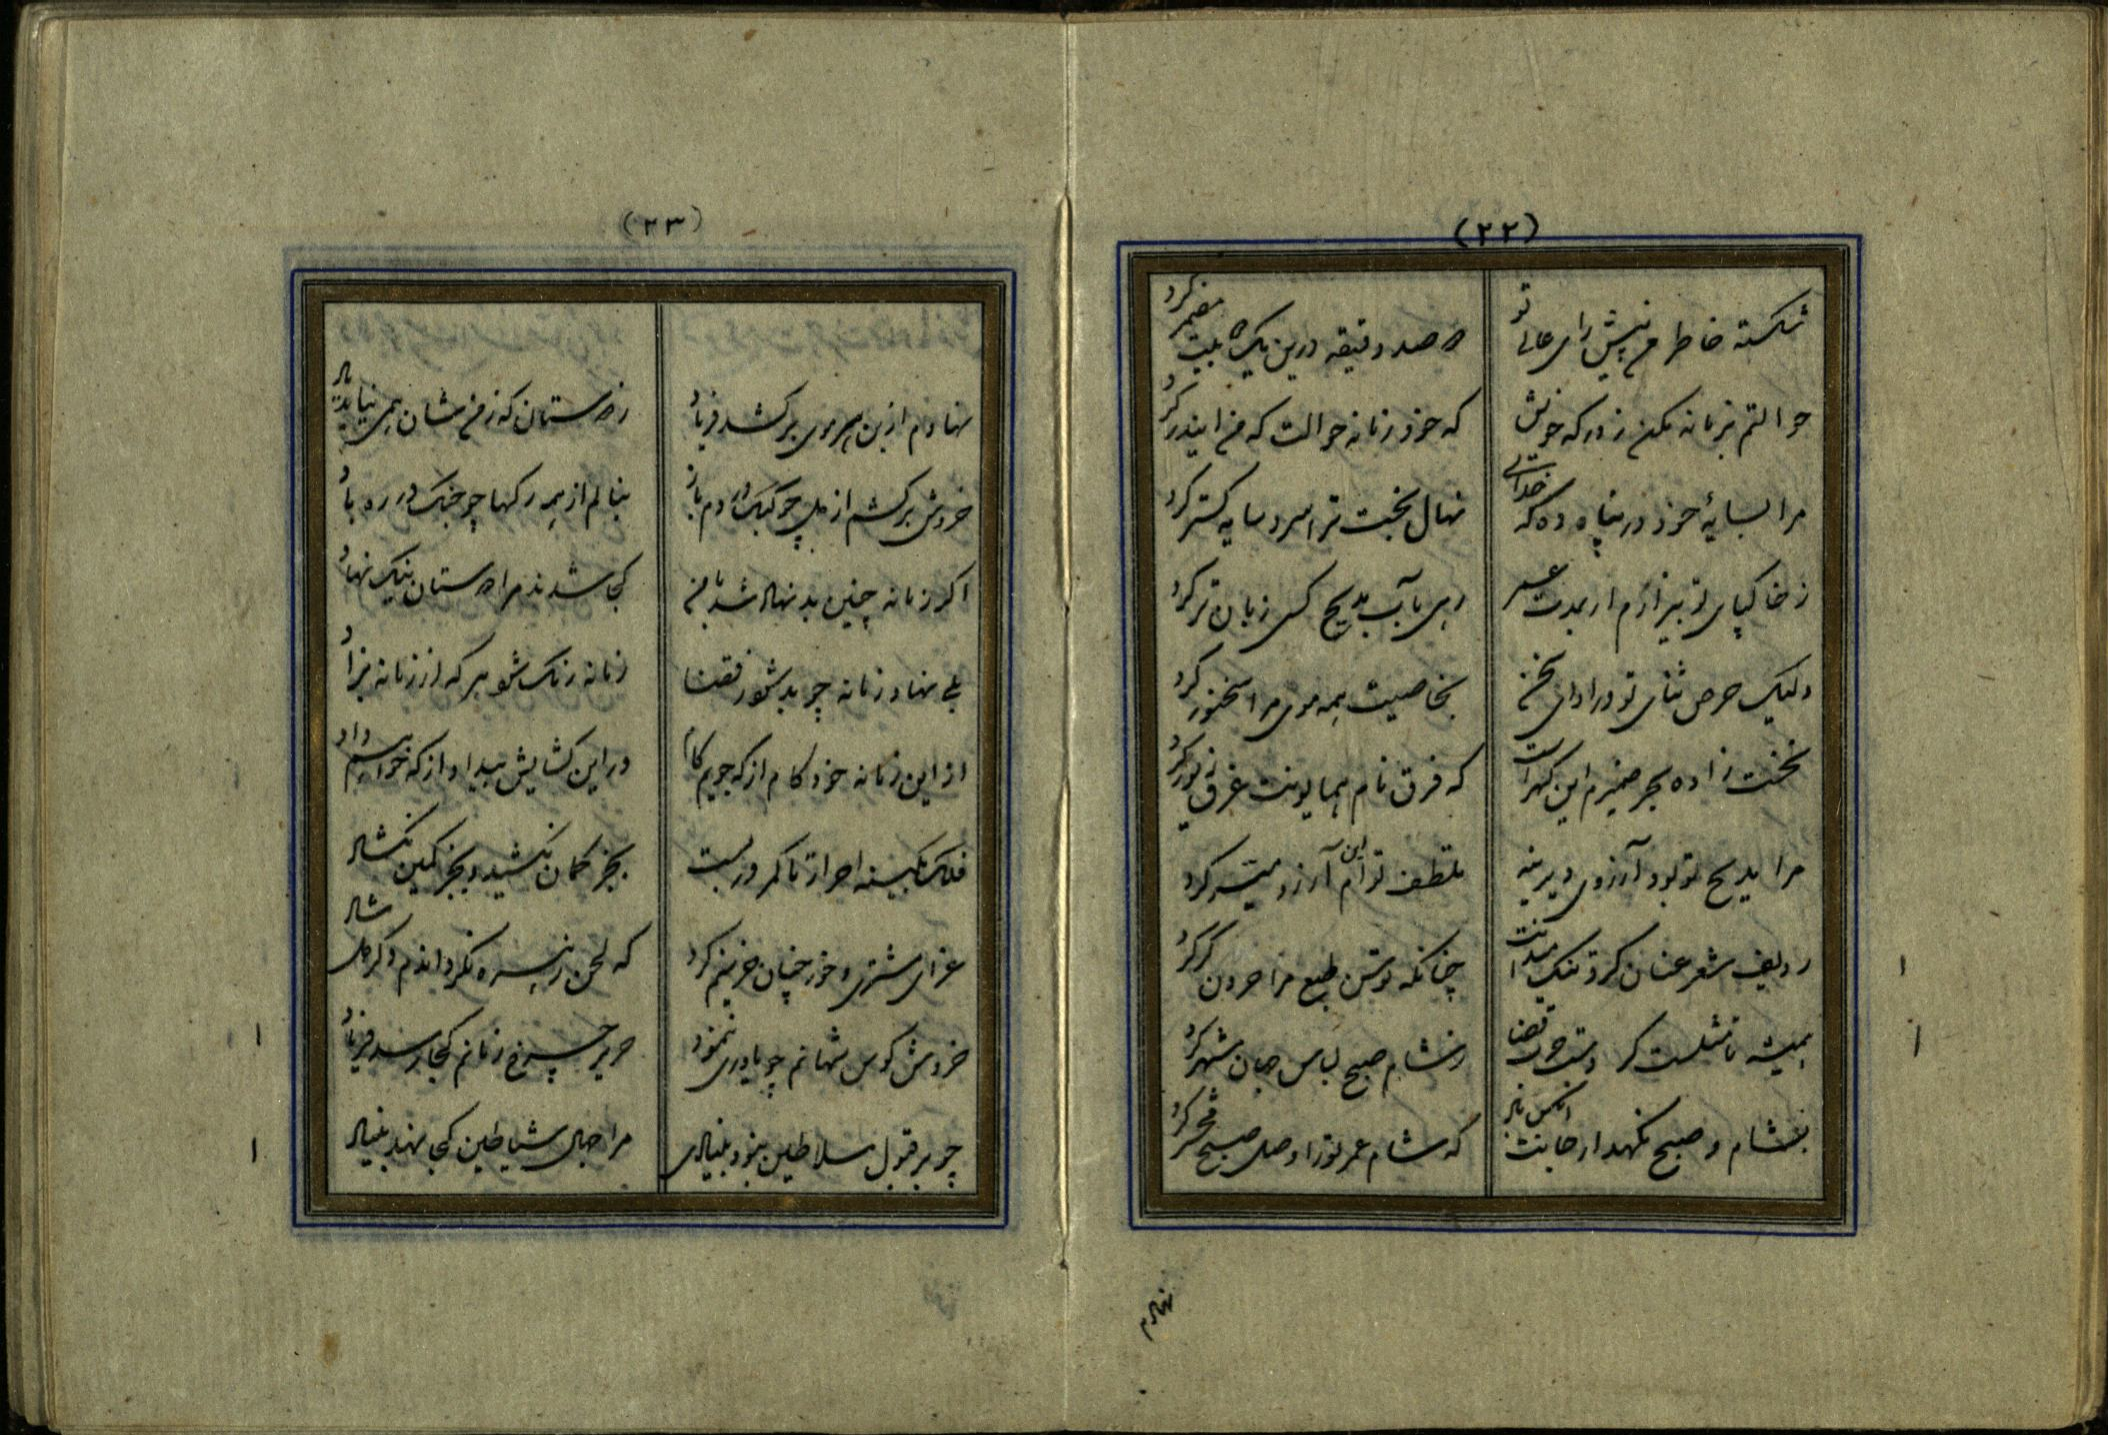 (۲۲)
شکسته خاطرم پیش رای عالی تو
دو صد دقیقه درین یک دو بیت مضمر کرد
حوالتم بزمانه مکن ز درگه خویش
که خود زمانه حوالت که من ایندر کرد
مرا بسایهٔ خود در پناه ده که خدای
نهال بخت ترا سرو سایه گستر کرد
ز خاکپای تو بیزارم ار بمدت عمر
رهی بآب مدیح کسی زبان تر کرد
ولیک حرص ثنای تو در ادای سخن
بخاصیت همه موی مرا سخنور کرد
نخست زاده بحر ضمیرم این گهر است
که فرق نام همایونت غرق زیور کرد
مرا مدیح تو بود آرزوی دیرینه
بلطف توام این آرزو میسر کرد
ردیف شعر عنان کرد تنک میدانت
چنانکه توسن طبع مرا حرون کر کرد
همیشه تا شکست کر دست قضا
ز شام صبح لباس جهان شهر کرد
بشام و صبح نگهدار جانت آنکس باد
که شام عمر تو را وصل صبح محشر کرد
نهادم
(۲۳)
نهادم از بن هر موی برکشد فریاد
ز دوستان که ز من شان همی نیاید یاد
خروش برکشم از دل چو کبک در دم باز
بنالم از همه رگها چو چنگ در ره باد
اگر زمانه چنین بد نهاد شد با من
کجا شدند مرا دوستان نیک نهاد
بلی نهاد زمانه چو بد شود ز قضا
زمانه رنگ شود هر که از زمانه بزاد
از این زمانه خود کام از که جویم کام
در این کشایش بیداد از که خواهم داد
فلک بکینه احرار تا کمر در بست
بجز کمان نکشید و بجز کمین نکشاد
عزای مشتری و خور چنان حزینم کرد
که لحن زهره نگرداندم دگر دل شاد
خروش کوس شهانم چو یاوری ننمود
صریر چرخ زنانم کجا رسد فریاد
چو بر قبول سلاطین نبود بنیادی
مرا خیال شیاطین کجا نهد بنیاد